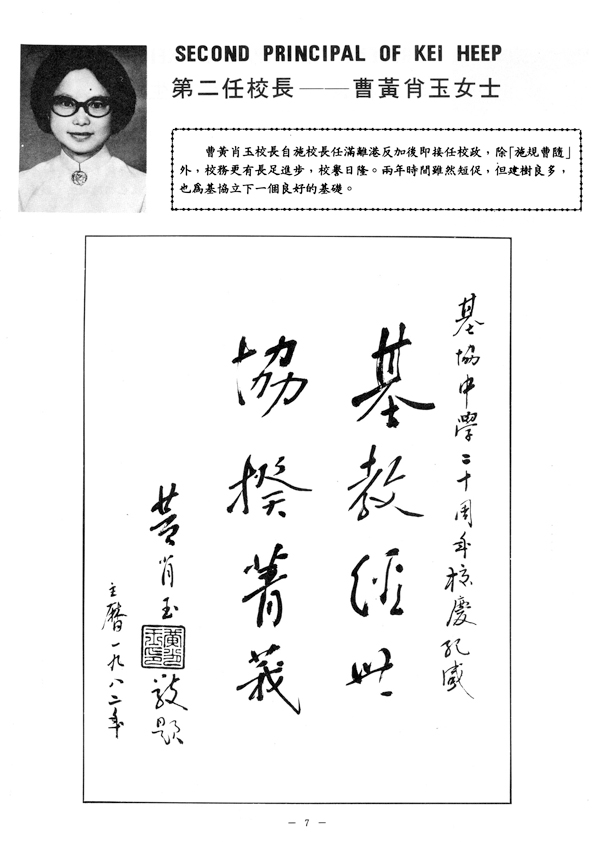 SECOND PRINCIPAL OF KEI HEEP
第二任校長——曹黃肖玉女士
曹黃肖玉校長自施校長任滿離港反加後即接任校政，除「施規曹隨」
外，校務更有長足進步，校譽日隆。兩年時間雖然短促，但建樹良多，
也為基協立下一個良好的基礎。
基協中學二十周年校慶紀盛
基教經世
協揆菁莪
黃肖玉
敬題
主曆一九八二年
— 7 —